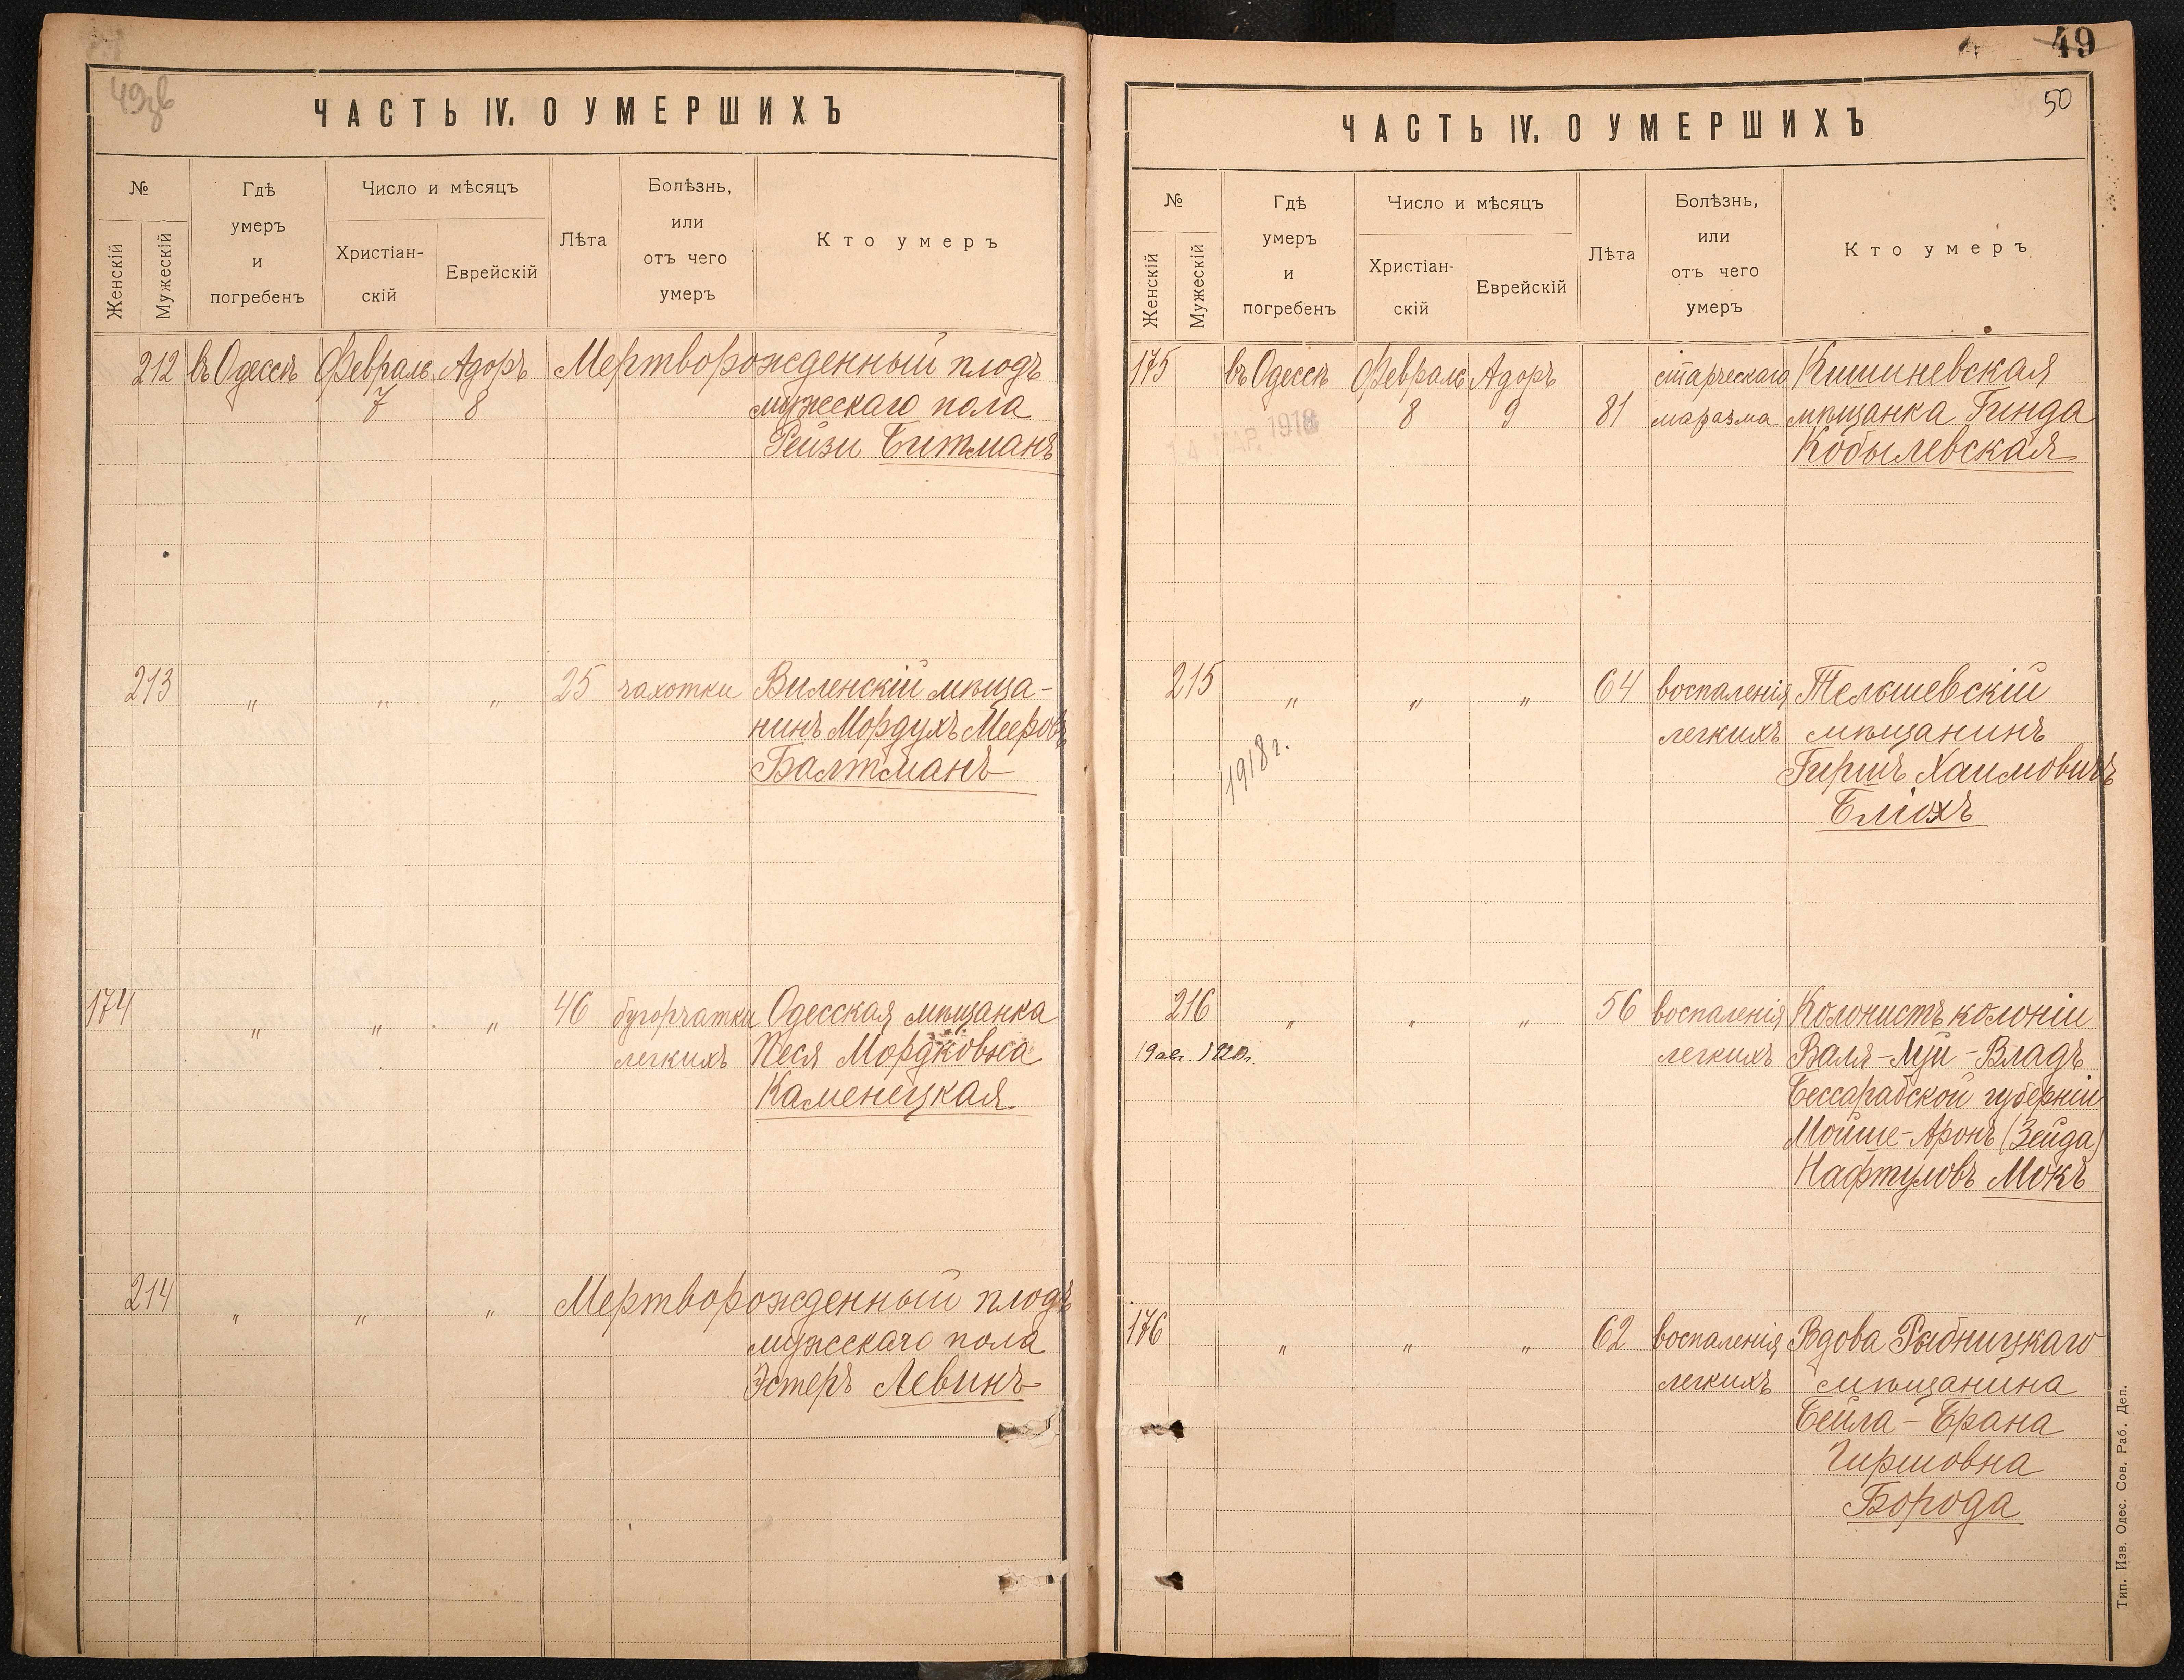 49зв
ЧАСТЬ IV. О УМЕРШИХЪ
№
Женскій
Мужескій
Гдѣ
умеръ
и
погребенъ
Число и мѣсяцъ
Христіан-
скій
Еврейскій
Лѣта
Болѣзнь,
или
отъ чего
умеръ
Кто умеръ
212 въ Одессѣ Февраль Адоръ Мертворожденный плодъ
7 8 мужескаго пола
Рейзи Битманъ
213 " " " 25 чахотки Виленскій мѣща-
нинъ Мордухъ Мееровъ
Балтманъ
174 " " " 46 бугорчатки Одесская мѣщанка
легкихъ Песя Мордковна
Каменецкая
214 " " " Мертворожденный плодъ
мужескаго пола
Эстеръ Левинъ
49
50
ЧАСТЬ IV. О УМЕРШИХЪ
№
Женскій
Мужескій
Гдѣ
умеръ
и
погребенъ
Число и мѣсяцъ
Христіан-
скій
Еврейскій
Лѣта
Болѣзнь,
или
отъ чего
умеръ
Кто умеръ
175 въ Одессѣ Февраль Адоръ старческаго Кишиневская
8 9 81 маразма мѣщанка Гинда
МАР. 1918
Кобылевская
215 " " " 64 воспаленія Тельшевскій
легкихъ мѣщанинъ
1918 г.
Гиршъ Хаимовичъ
Бліохъ
216 " " " 56 воспаленія Колонистъ колоніи
19 авг. 1920г. легкихъ Валя-Луй-Владъ
Бессарабской губерніи
Мойше-Аронъ (Зейда)
Нафтуловъ Мокъ
176 " " " 62 воспаленія Вдова Рыбницкаго
легкихъ мѣщанина
Бейла-Брана
Гиршовна
Борода
Тип. Изв. Одес. Сов. Раб. Деп.